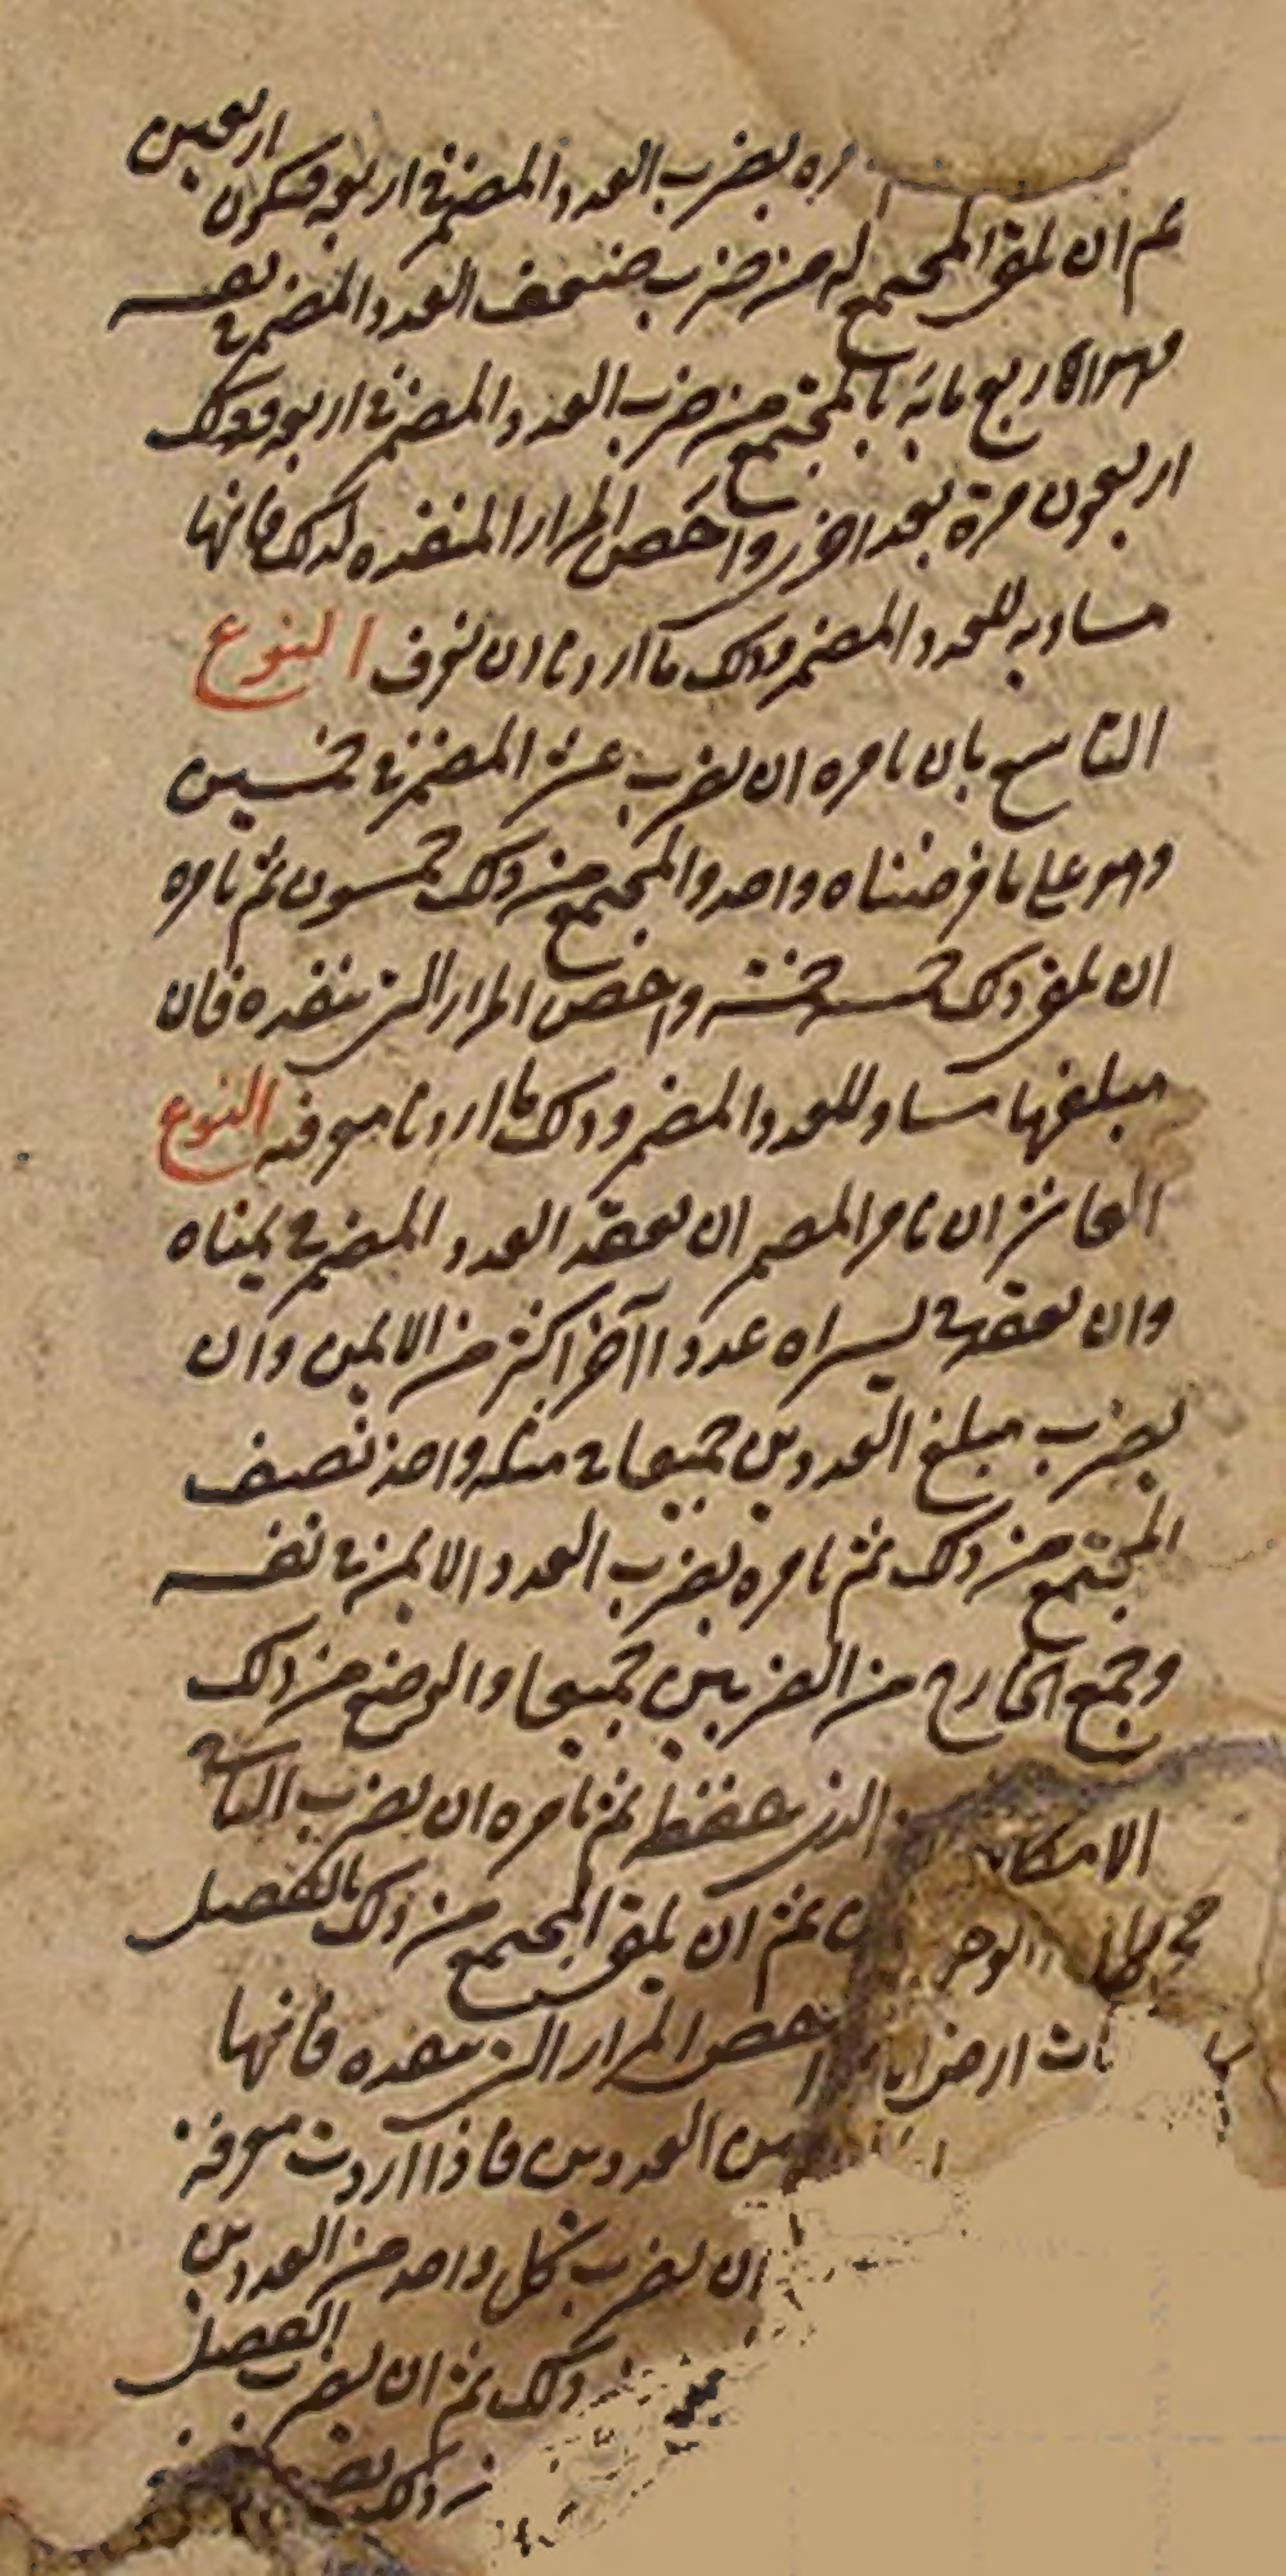 ره بضرب العدد المضمر في اربعه فيكون اربعين
ثم ان يلقي المجتمع له من ضرب ضعف العدد المضمر في نفسه
وهو اربع مايه بالمجتمع من ضرب العدد المضمر في اربعه وذلك
اربعون مرة بعد اخرى واحص المرار المنفده لذلك فانها
مساويه للعدد المضمر وذلك ما اردنا ان نعرف النوع
التاسع بان تامره ان يضرب عشر المضمر في خمسين
وهو على ما فرضناه واحد والمجتمع من ذلك خمسون ثم تامره
ان يلقي ذلك خمسة خمسة واحص المرار التي تنفده فان
مبلغها مساو للعدد المضمر وذلك ما اردنا معرفته النوع
العاشر ان تامر المضمر ان يعقد العدد المضمر في يمناه
وان يعقد في يسراه عددا آخر اكثر من الايمن وان
يضرب مبلغ العددين جميعا في مثله واخذ نصف
المجتمع من ذلك ثم تامره بضرب العدد الايمن في نفسه
وجمع الخارج من الضربين جميعا والوضع من ذلك
الامكان الذي حفظ ثم تامره ان يضرب الباقي
الوجه ثم ان يلقي المجتمع من ذلك بالفضل
احص المرار التي تنفده فانها
العددين فاذا اردت معرفة
ان يضرب كل واحد من العددين
ذلك ثم ان يضرب الفضل
ذلك